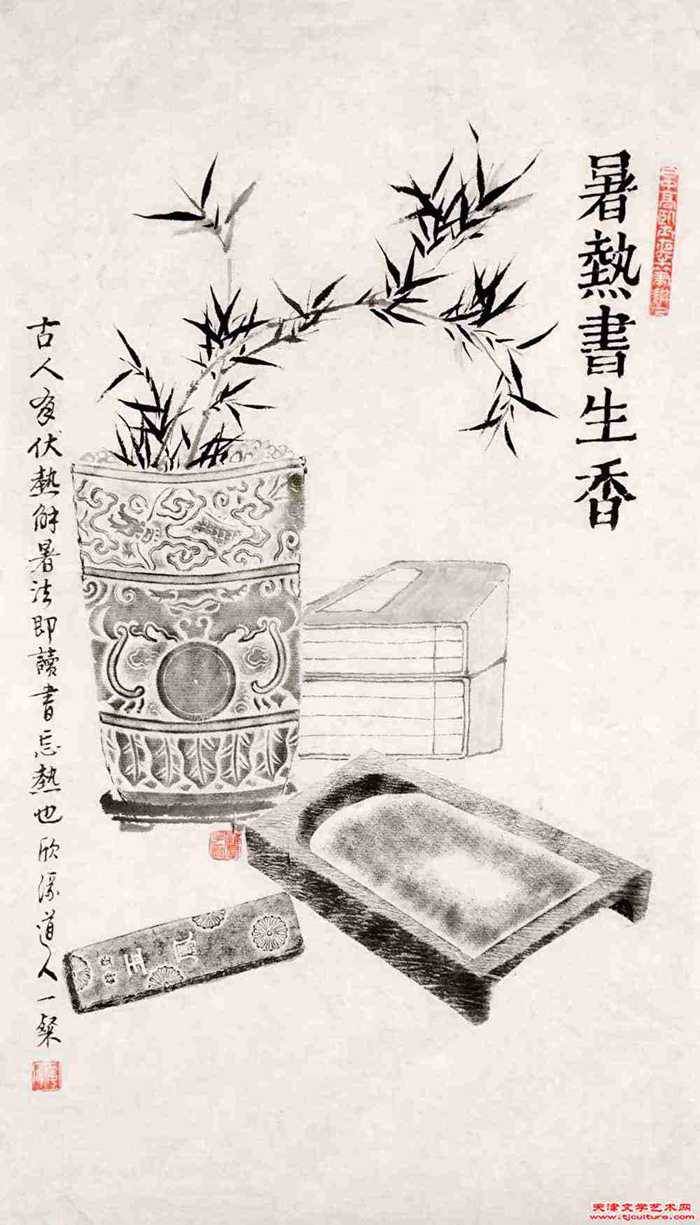 暑熱書生香
古人有伏熱解暑法即讀書忘熱也欣溪道人一粲
天津文学艺术网
www.tjculture.com